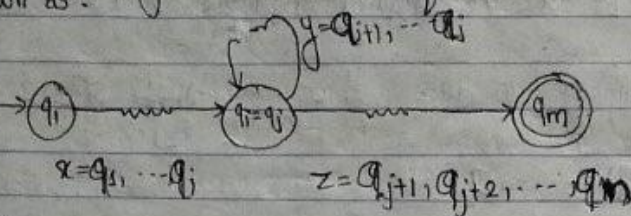 y=q_{i+1}, ... q_j
q_1
q_i=q_j
q_m
x=q_1, ... q_i
z=q_{j+1}, q_{j+2}, ... , q_m